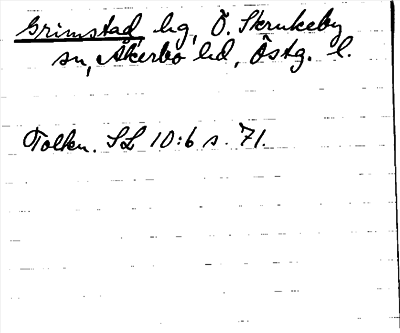 Grimstad hg, Ö. Skrukeby
sn, Åkerbo hd, Östg. l.
Tolkn. SL 10:6 s. 71.